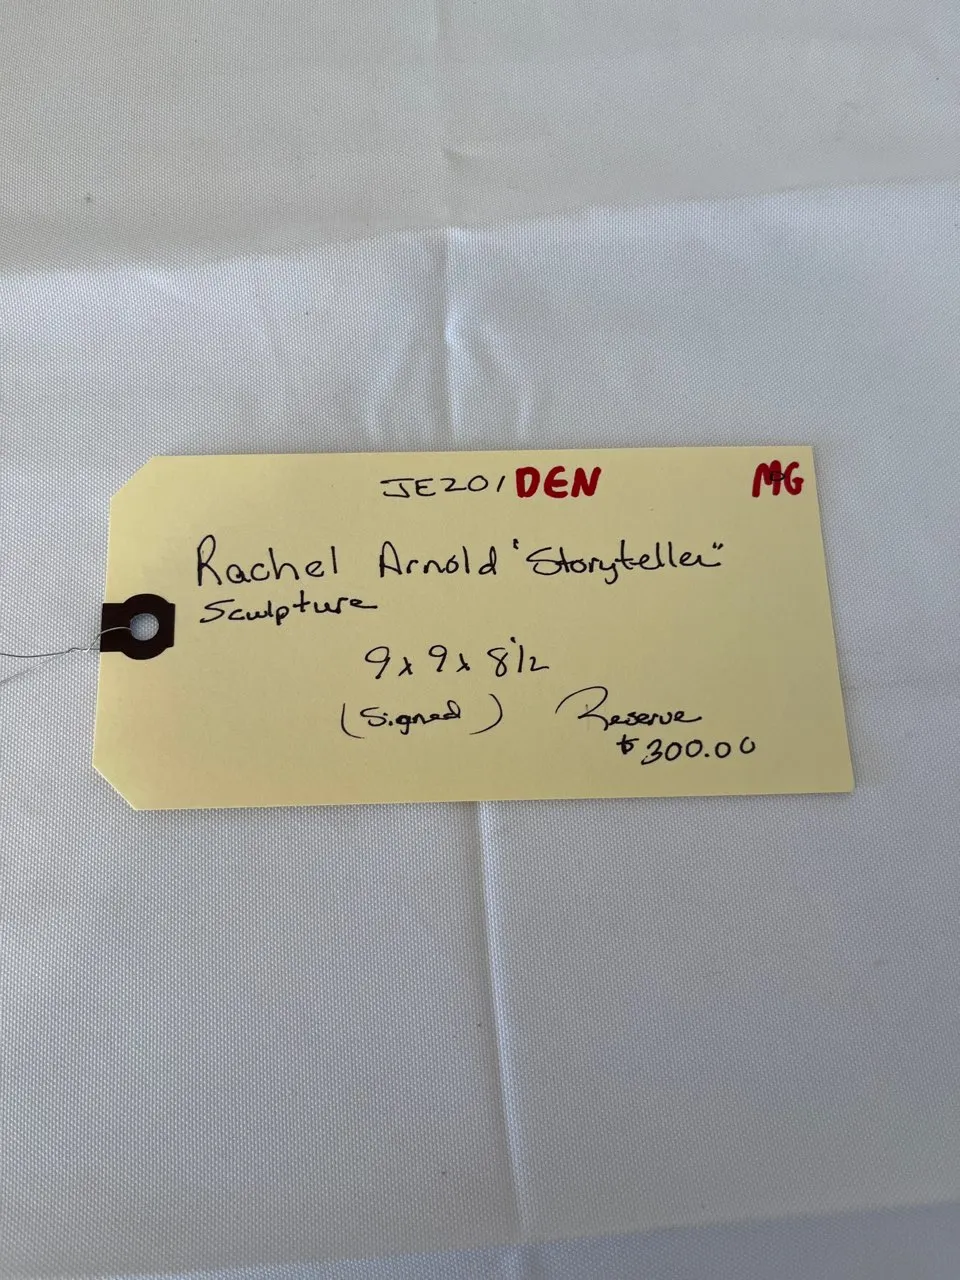 JE201 DEN MG
Rachel Arnold "Storyteller"
Sculpture
9 x 9 x 8 1/2
(Signed) Reserve
$300.00